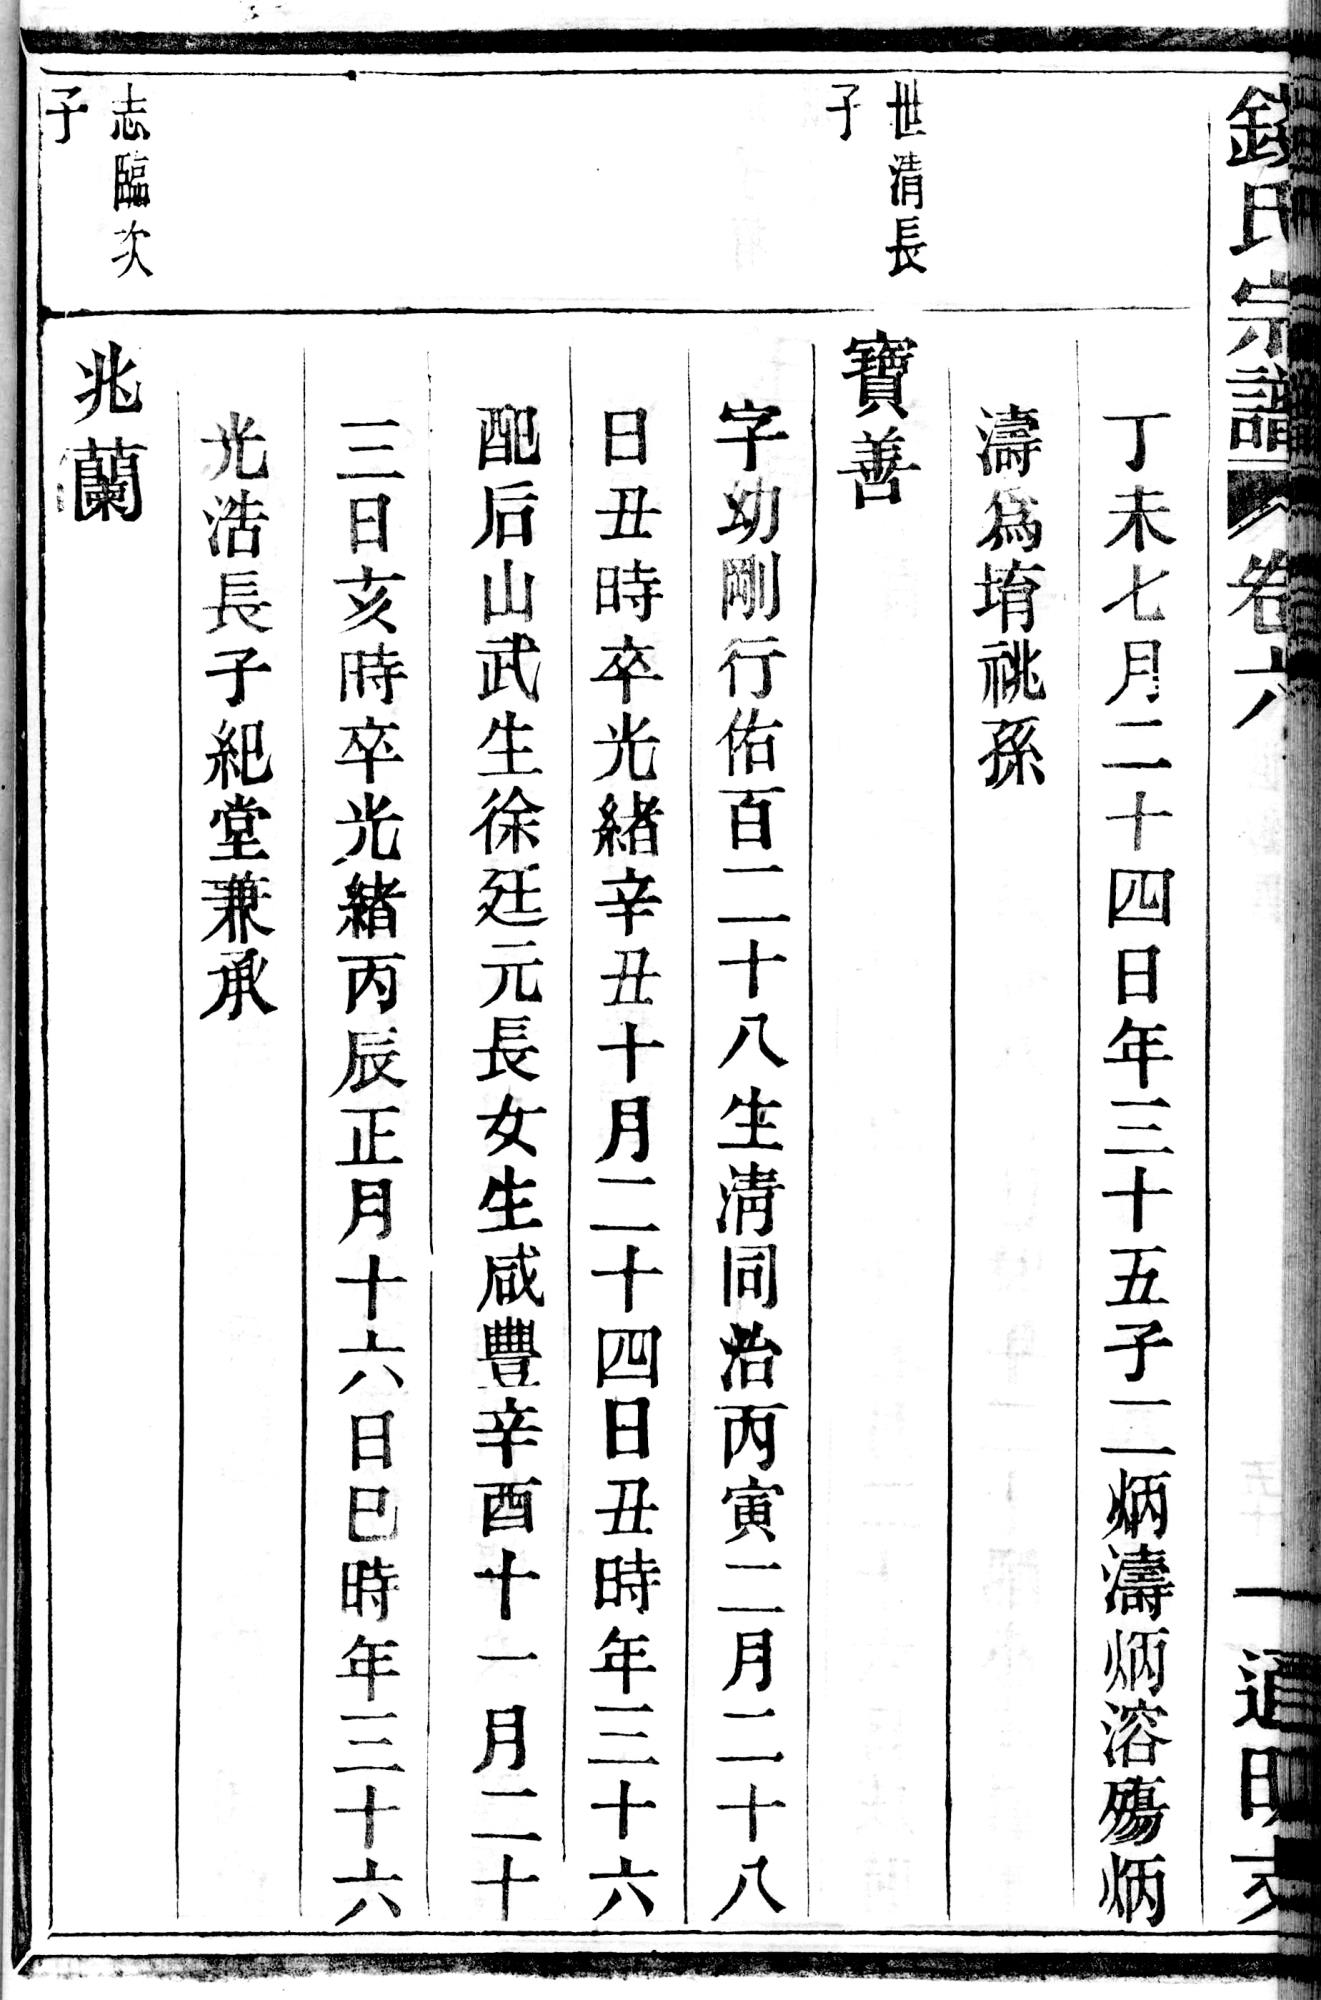 氏宗譜 卷六 一 通明支
丁未七月二十四日年三十五子二炳濤炳溶殤炳
濤為堉祧孫
世清長
子
寶善
字幼剛行佑百二十八生清同治丙寅二月二十八
日丑時卒光緒辛丑十月二十四日丑時年三十六
配后山武生徐廷元長女生咸豐辛酉十一月二十
三日亥時卒光緒丙辰正月十六日巳時年三十六
光浩長子紀堂兼承
志臨次
子
兆蘭